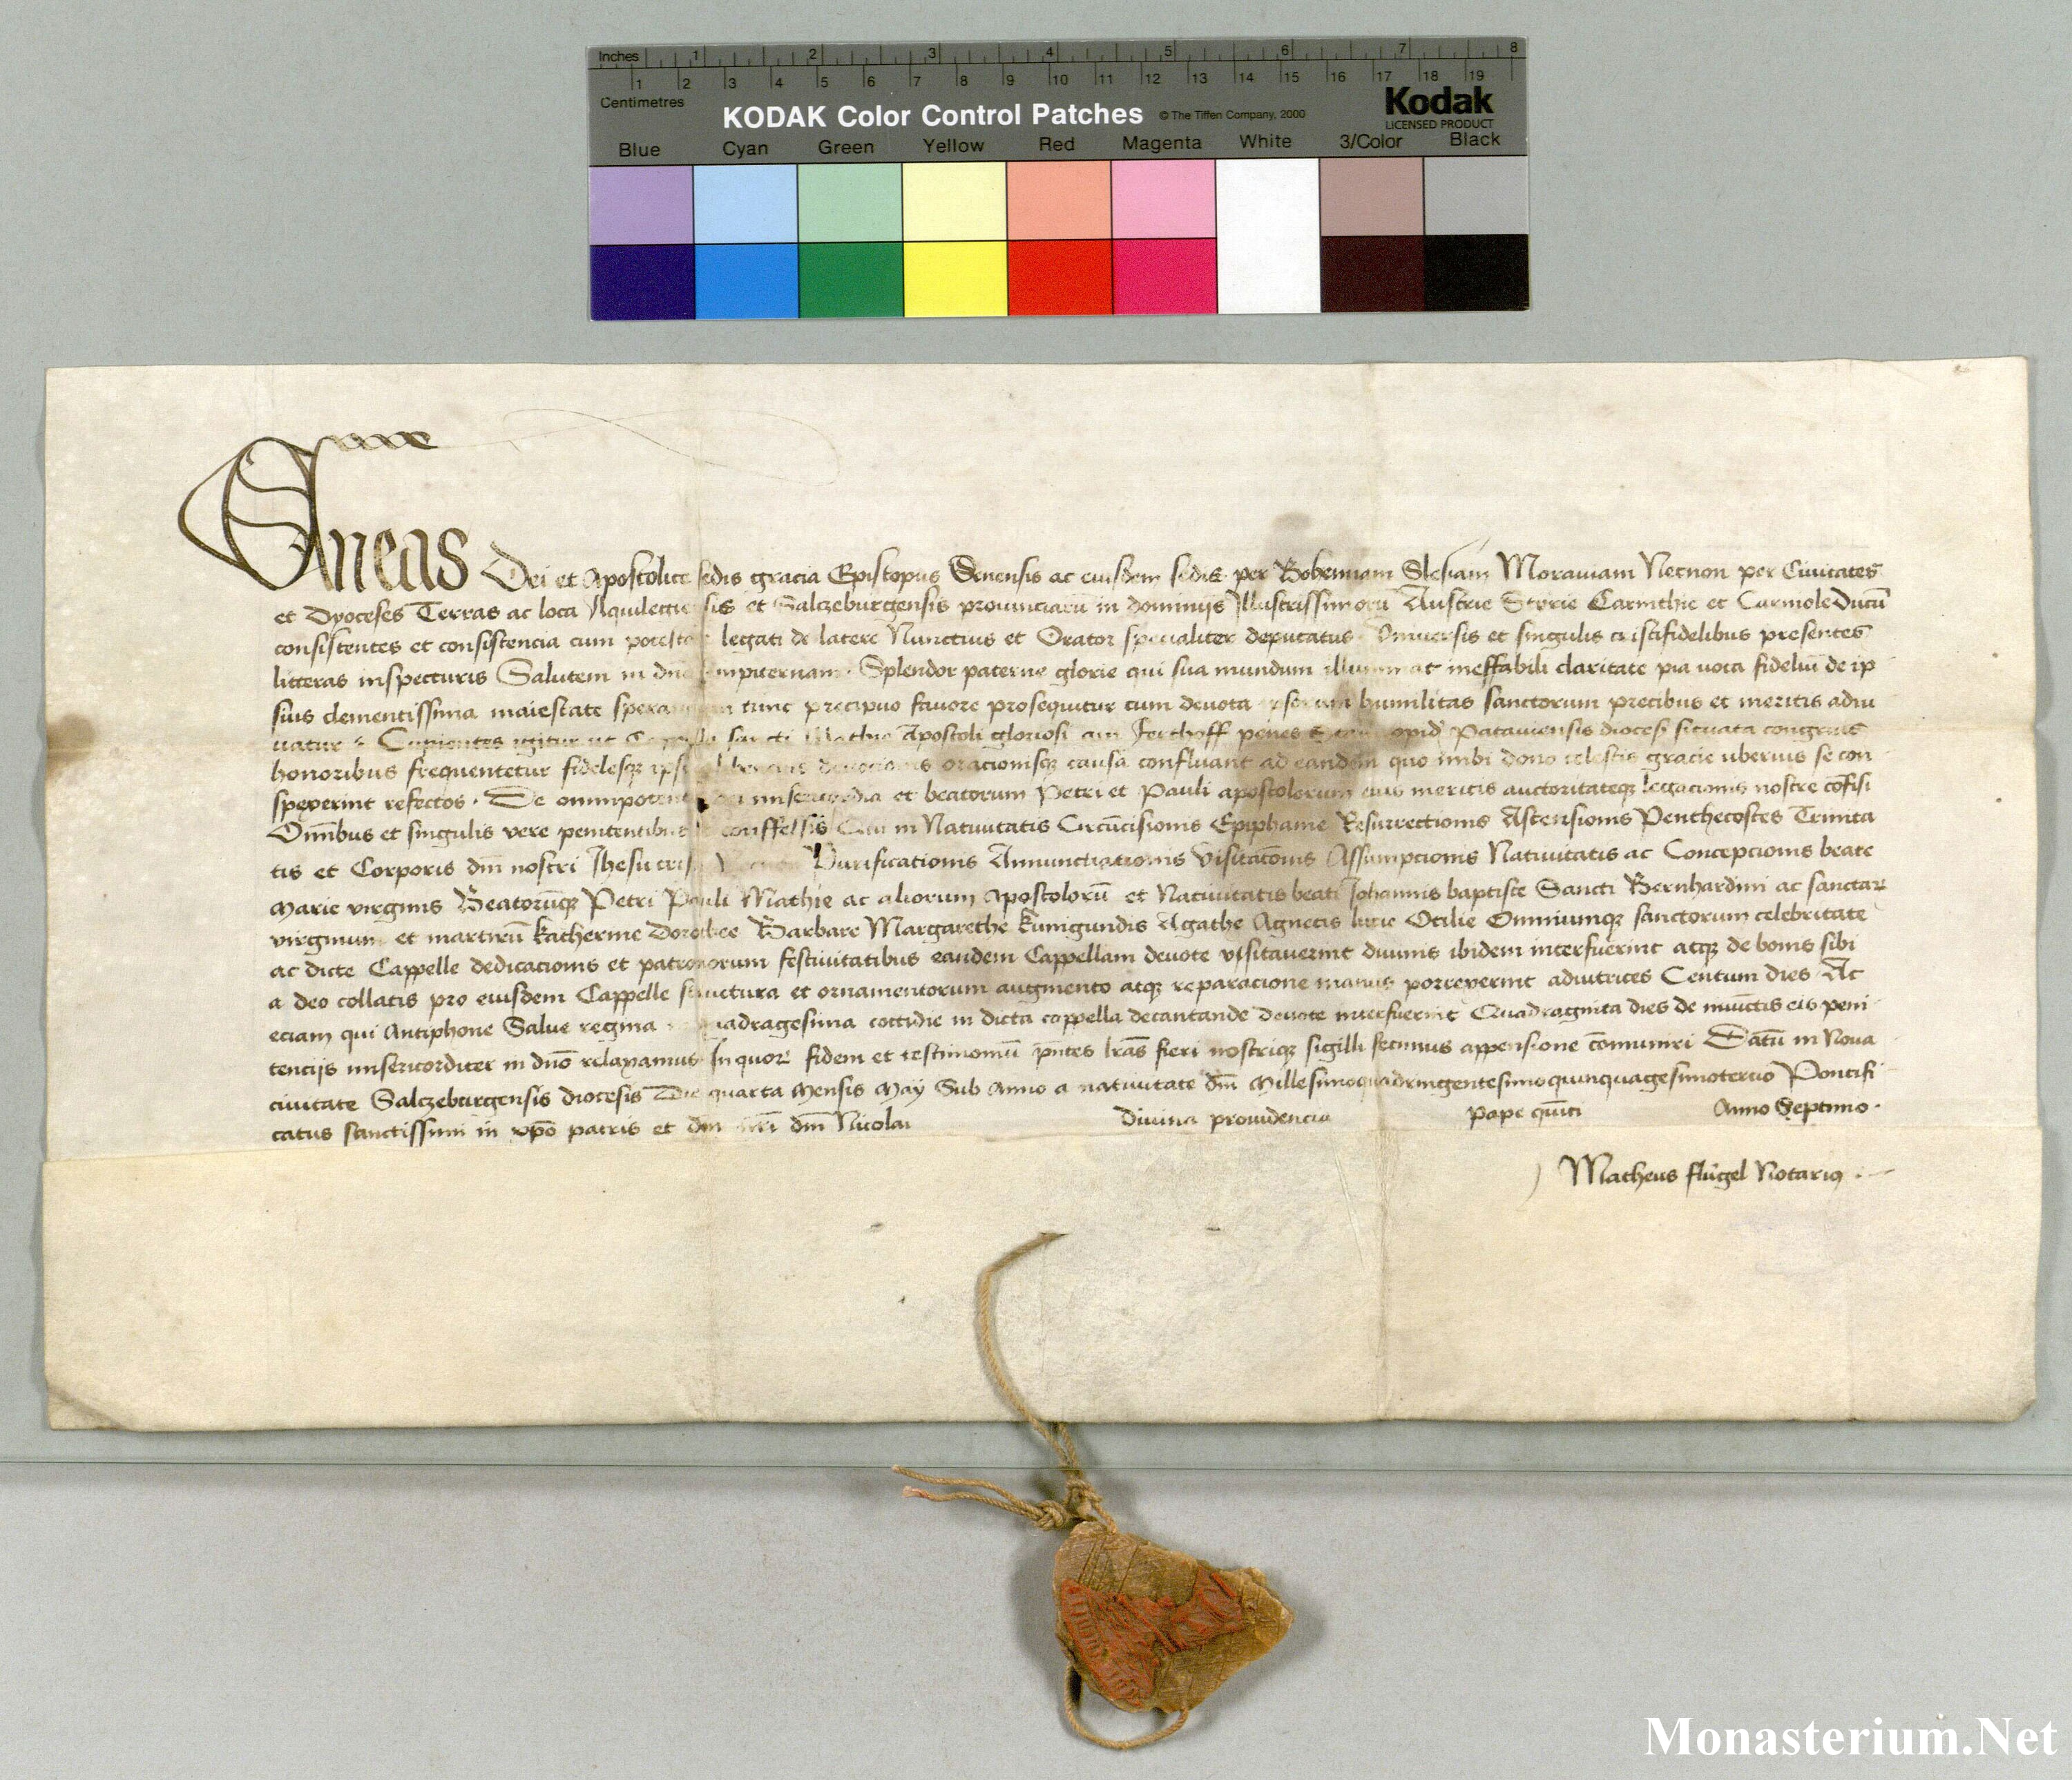 Inches 1 2 3 4 5 6 7 8
1 2 3 4 5 6 7 8 9 10 11 12 13 14 15 16 17 18 19
Centimetres
KODAK Color Control Patches © The Tiffen Company, 2000 Kodak
LICENSED PRODUCT
Blue Cyan Green Yellow Red Magenta White 3/Color Black
Eneas Dei et Apostolice sedis gracia Episcopus Senensis ac eiusdem sedis per Bohemiam Slesiam Morauiam Necnon per Ciuitates
et Dyoceses Terras ac loca et Salczeburgensis prouinciarū in dominijs Illustrissimorū Austrie Stirie Carinthie et Carniole Ducū
consistentes et consistencia cum legati de latere Nunccius et Orator specialiter deputatus Vniuersis et singulis cristifidelibus presentes
litteras inspecturis Salutem in Splendor paterne glorie qui sua mundum ineffabili claritate pia uota fideliū de ip
sius clementissima maiestate tunc precipuo fauore prosequitur cum deuota humilitas sanctorum precibus et meritis adiu
uatur Cupientes igitur ut sancti Mathie Apostoli gloriosi penes Patauiensis diocesi situata congruis
honoribus frequentetur fidelesqʒ oracionisqʒ causa confluant ad eandem quo inibi dono celestis gracie uberius se con
spexerint refectos De et beatorum Petri et Pauli apostolorum eius meritis auctoritateqʒ legacionis nostre cōfisi
Omībus et singulis vere penitentibus Qui in Natiuitatis Circūcisionis Epiphanie Resurrectionis Ascensionis Penthecostes Trinita
tis et Corporis dnī nostri Jhesu Purificationis Annunctiationis Visitacōnis Assumpcionis Natiuitatis ac Concepcionis beate
Marie virginis Beatorūqʒ Petri Pauli Mathie ac aliorum Apostolorū et Natiuitatis beati Johannis baptiste Sancti Bernhardini ac sanctarꝝ
virginum et martirū Katherine Dorothee Barbare Margarethe Kunigundis Agathe Agnetis lucie Otilie Omniumqʒ sanctorum celebritate
ac dicte Cappelle dedicacionis et patronorum festiuitatibus eandem Cappellam deuote visitauerint diuinis ibidem interfuerint atqʒ de bonis sibi
a deo collatis pro eiusdem Cappelle structura et ornamentorum augmento atqʒ reparacione manus porrexerint adiutrices Centum dies Ac
eciam qui Antiphone Salue regina quadragesima cottidie in dicta cappella decantande deuote interfuerint Quadraginta dies de iniūctis eis peni
tencijs misericorditer in dnō relaxamus In quorꝝ fidem et testimoniū p̄ntes lrās fieri nostriqʒ sigilli fecimus appensione cōmuniri Datū in Noua
ciuitate Salczeburgensis diocesis Die quarta Mensis Maÿ Sub Anno a natiuitate dnī Millesimoquadringentesimoquinquagesimotertio Pontifi
catus sanctissimi in xp̄o patris et dnī nrī dnī Nicolai Diuina prouidencia Pape qui̅ti Anno Septimo
Matheus flügel Notariꝰ
Monasterium.Net